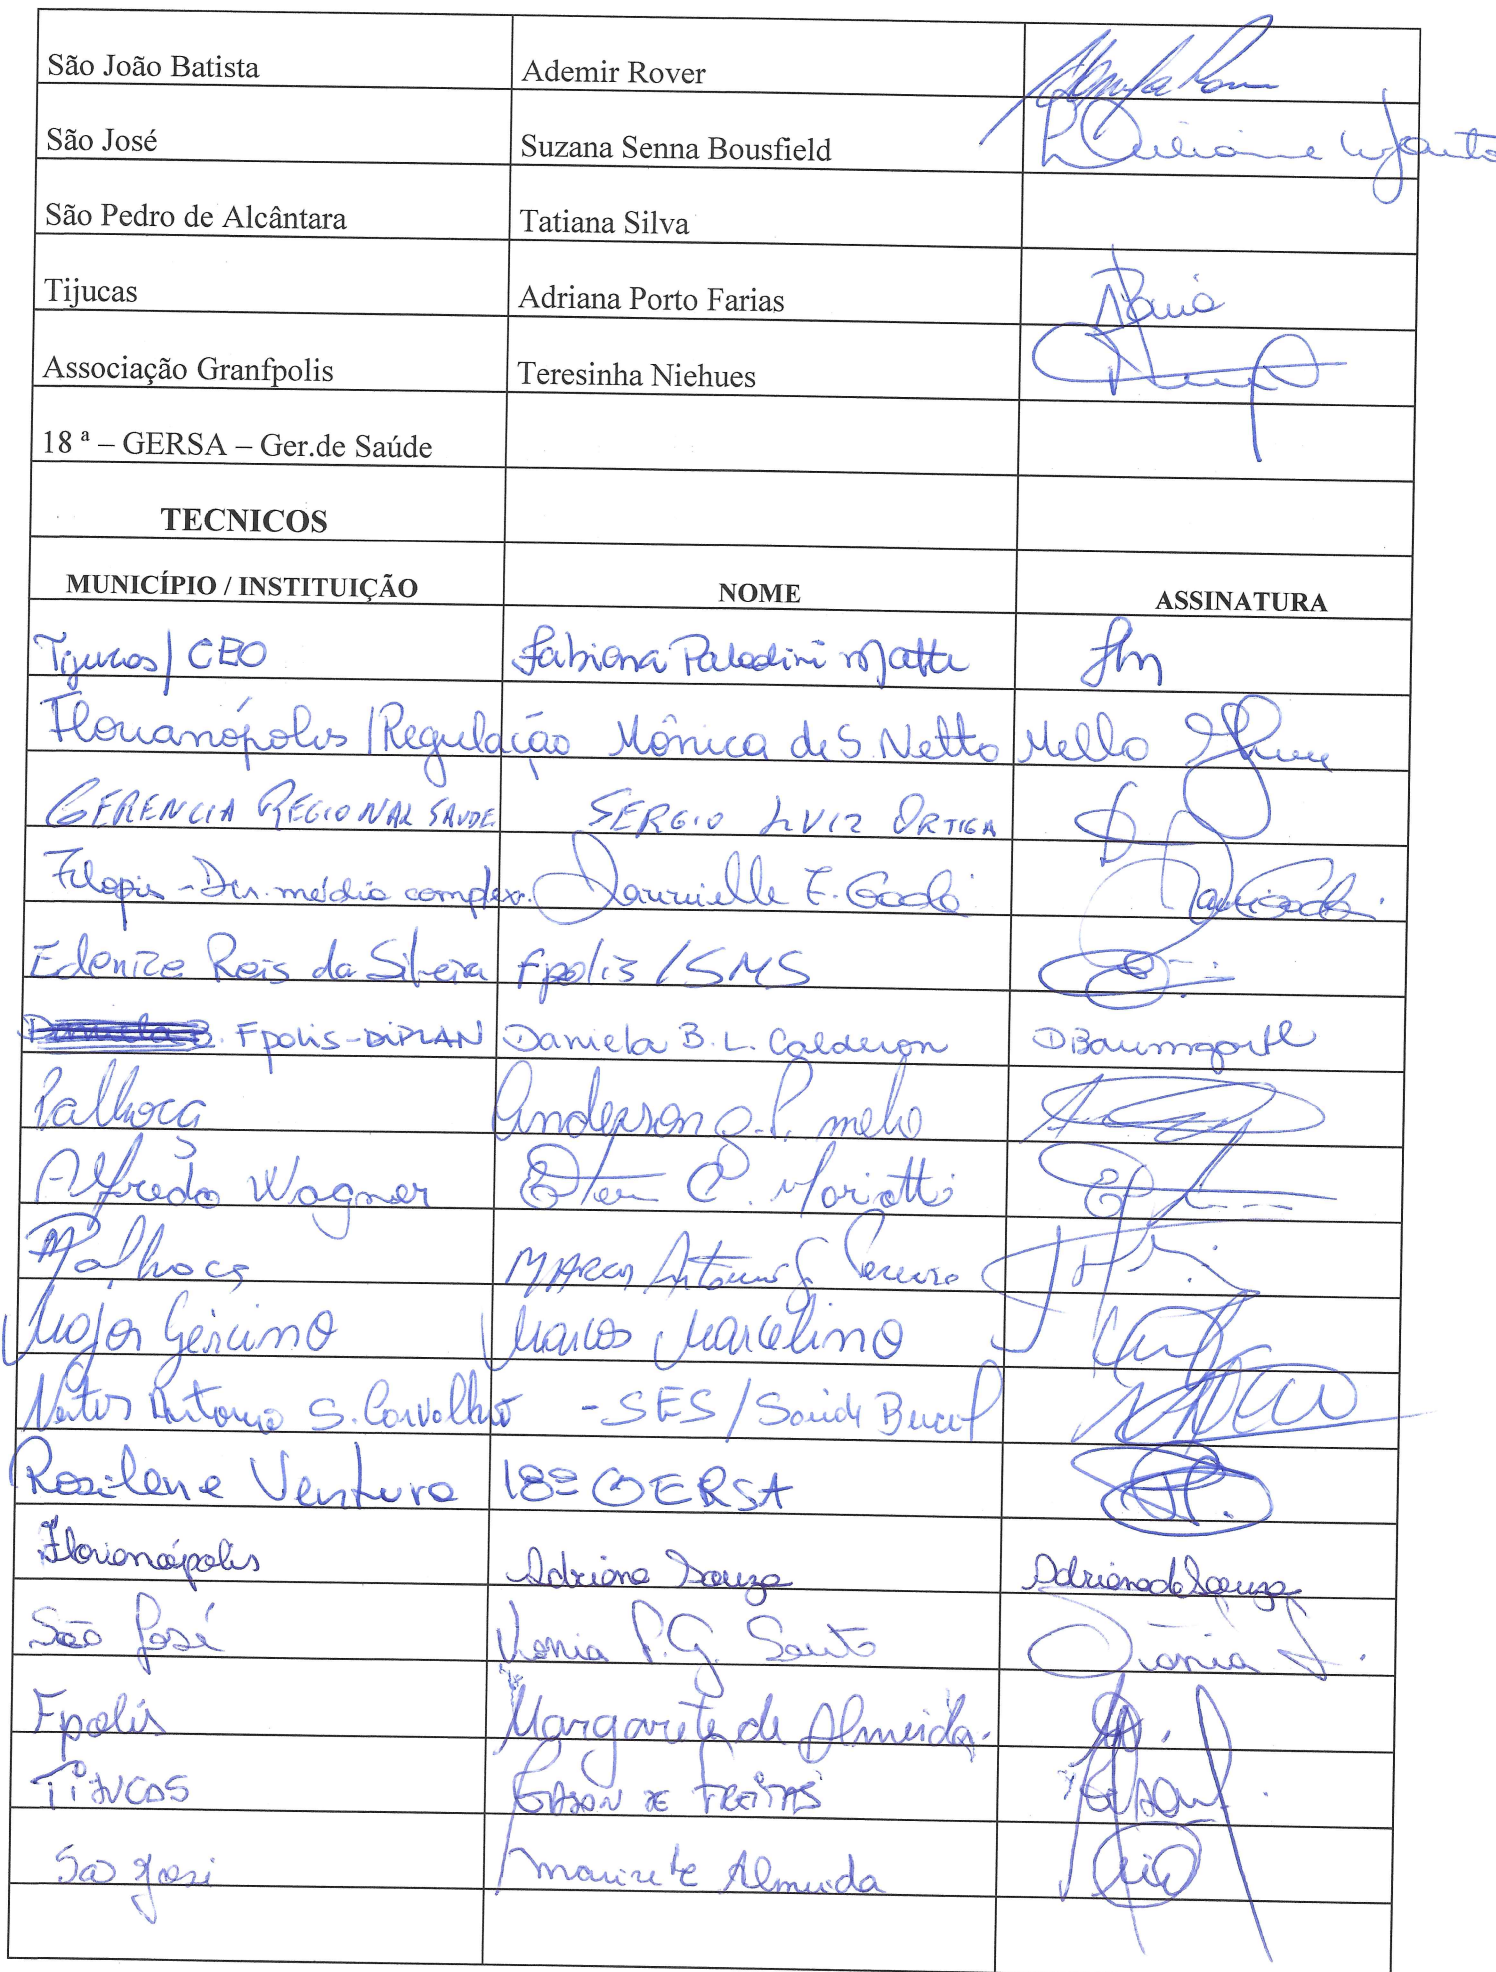 São João Batista Ademir Rover
São José Suzana Senna Bousfield
São Pedro de Alcântara Tatiana Silva
Tijucas Adriana Porto Farias
Associação Granfpolis Teresinha Niehues
18 ª – GERSA – Ger.de Saúde
TECNICOS
MUNICÍPIO / INSTITUIÇÃO NOME ASSINATURA
Tijucas / CEO Fabiana Paladini Matte
Florianópolis / Regulação Mônica de S. Netto Mello
GERENCIA REGIONAL SAUDE SERGIO LUIZ ORTIGA
média complex. E.
Edenize Reis da Silveira Fpolis / SMS
Fpolis - DIPLAN Daniela B. L. Calderon DBaumgartl
Palhoça Anderson melo
Alfredo Wagner C. Mariotti
Palhoça Marcos Antonio
Major Gercino Marcos Marcelino
Antonio S. Carvalho - SES / Saúde Bucal
Rosilene Ventura 18ª GERSA
Florianópolis Adriana Souza Adriana de Souza
São José P. G. Tânia
Fpolis Margarete de Almeida
TIJUCAS EDSON DE FREITAS
São José Marizete Almeida